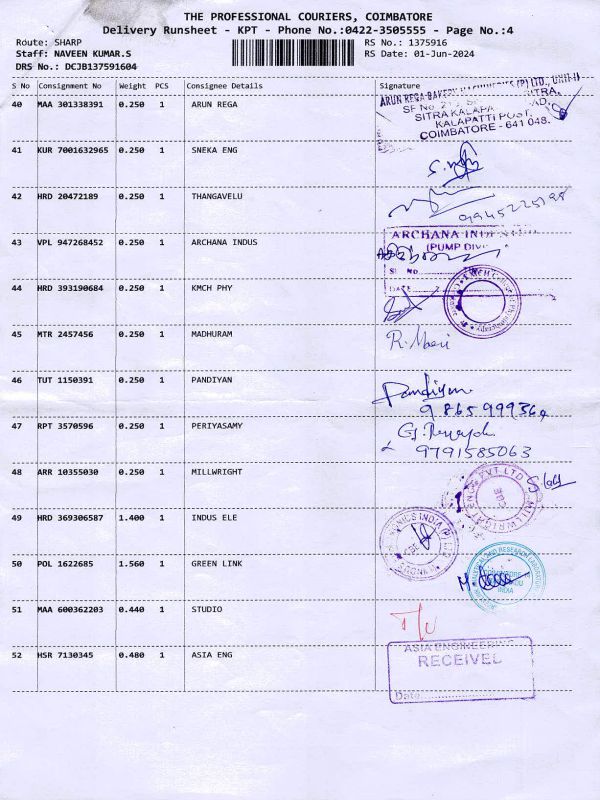 THE PROFESSIONAL COURIERS, COIMBATORE
Delivery Runsheet - KPT - Phone No.:0422-3505555 - Page No.:4
Route: SHARP RS No.: 1375916
Staff: NAVEEN KUMAR.S RS Date: 01-Jun-2024
DRS No.: DCJB137591604
S No Consignment No Weight PCS Consignee Details Signature
40 MAA 301338391 0.250 1 ARUN REGA
ARUN REGA BAKERY MACHINERIES (P) LTD., UNIT-II
SF No. SITRA,
SITRA KALAPA ROAD,
KALAPATTI POST,
COIMBATORE - 641 048.
41 KUR 7001632965 0.250 1 SNEKA ENG
42 HRD 20472189 0.250 1 THANGAVELU
9945225198
43 VPL 947268452 0.250 1 ARCHANA INDUS
ARCHANA
(PUMP
SI NO
DATE
44 HRD 393190684 0.250 1 KMCH PHY
KMCH
45 MTR 2457456 0.250 1 MADHURAM R. Mani
46 TUT 1150391 0.250 1 PANDIYAN Pandiyan
9865999364
47 RPT 3570596 0.250 1 PERIYASAMY
9791585063
48 ARR 10355030 0.250 1 MILLWRIGHT
MILLWRIGHT PVT LTD
CBE
49 HRD 369306587 1.400 1 INDUS ELE
INDIA (P) LTD
50 POL 1622685 1.560 1 GREEN LINK
RESEARCH LABORATORY
INDIA
51 MAA 600362203 0.440 1 STUDIO
52 HSR 7130345 0.480 1 ASIA ENG
ASIA ENGINEERING
RECEIVED
Date